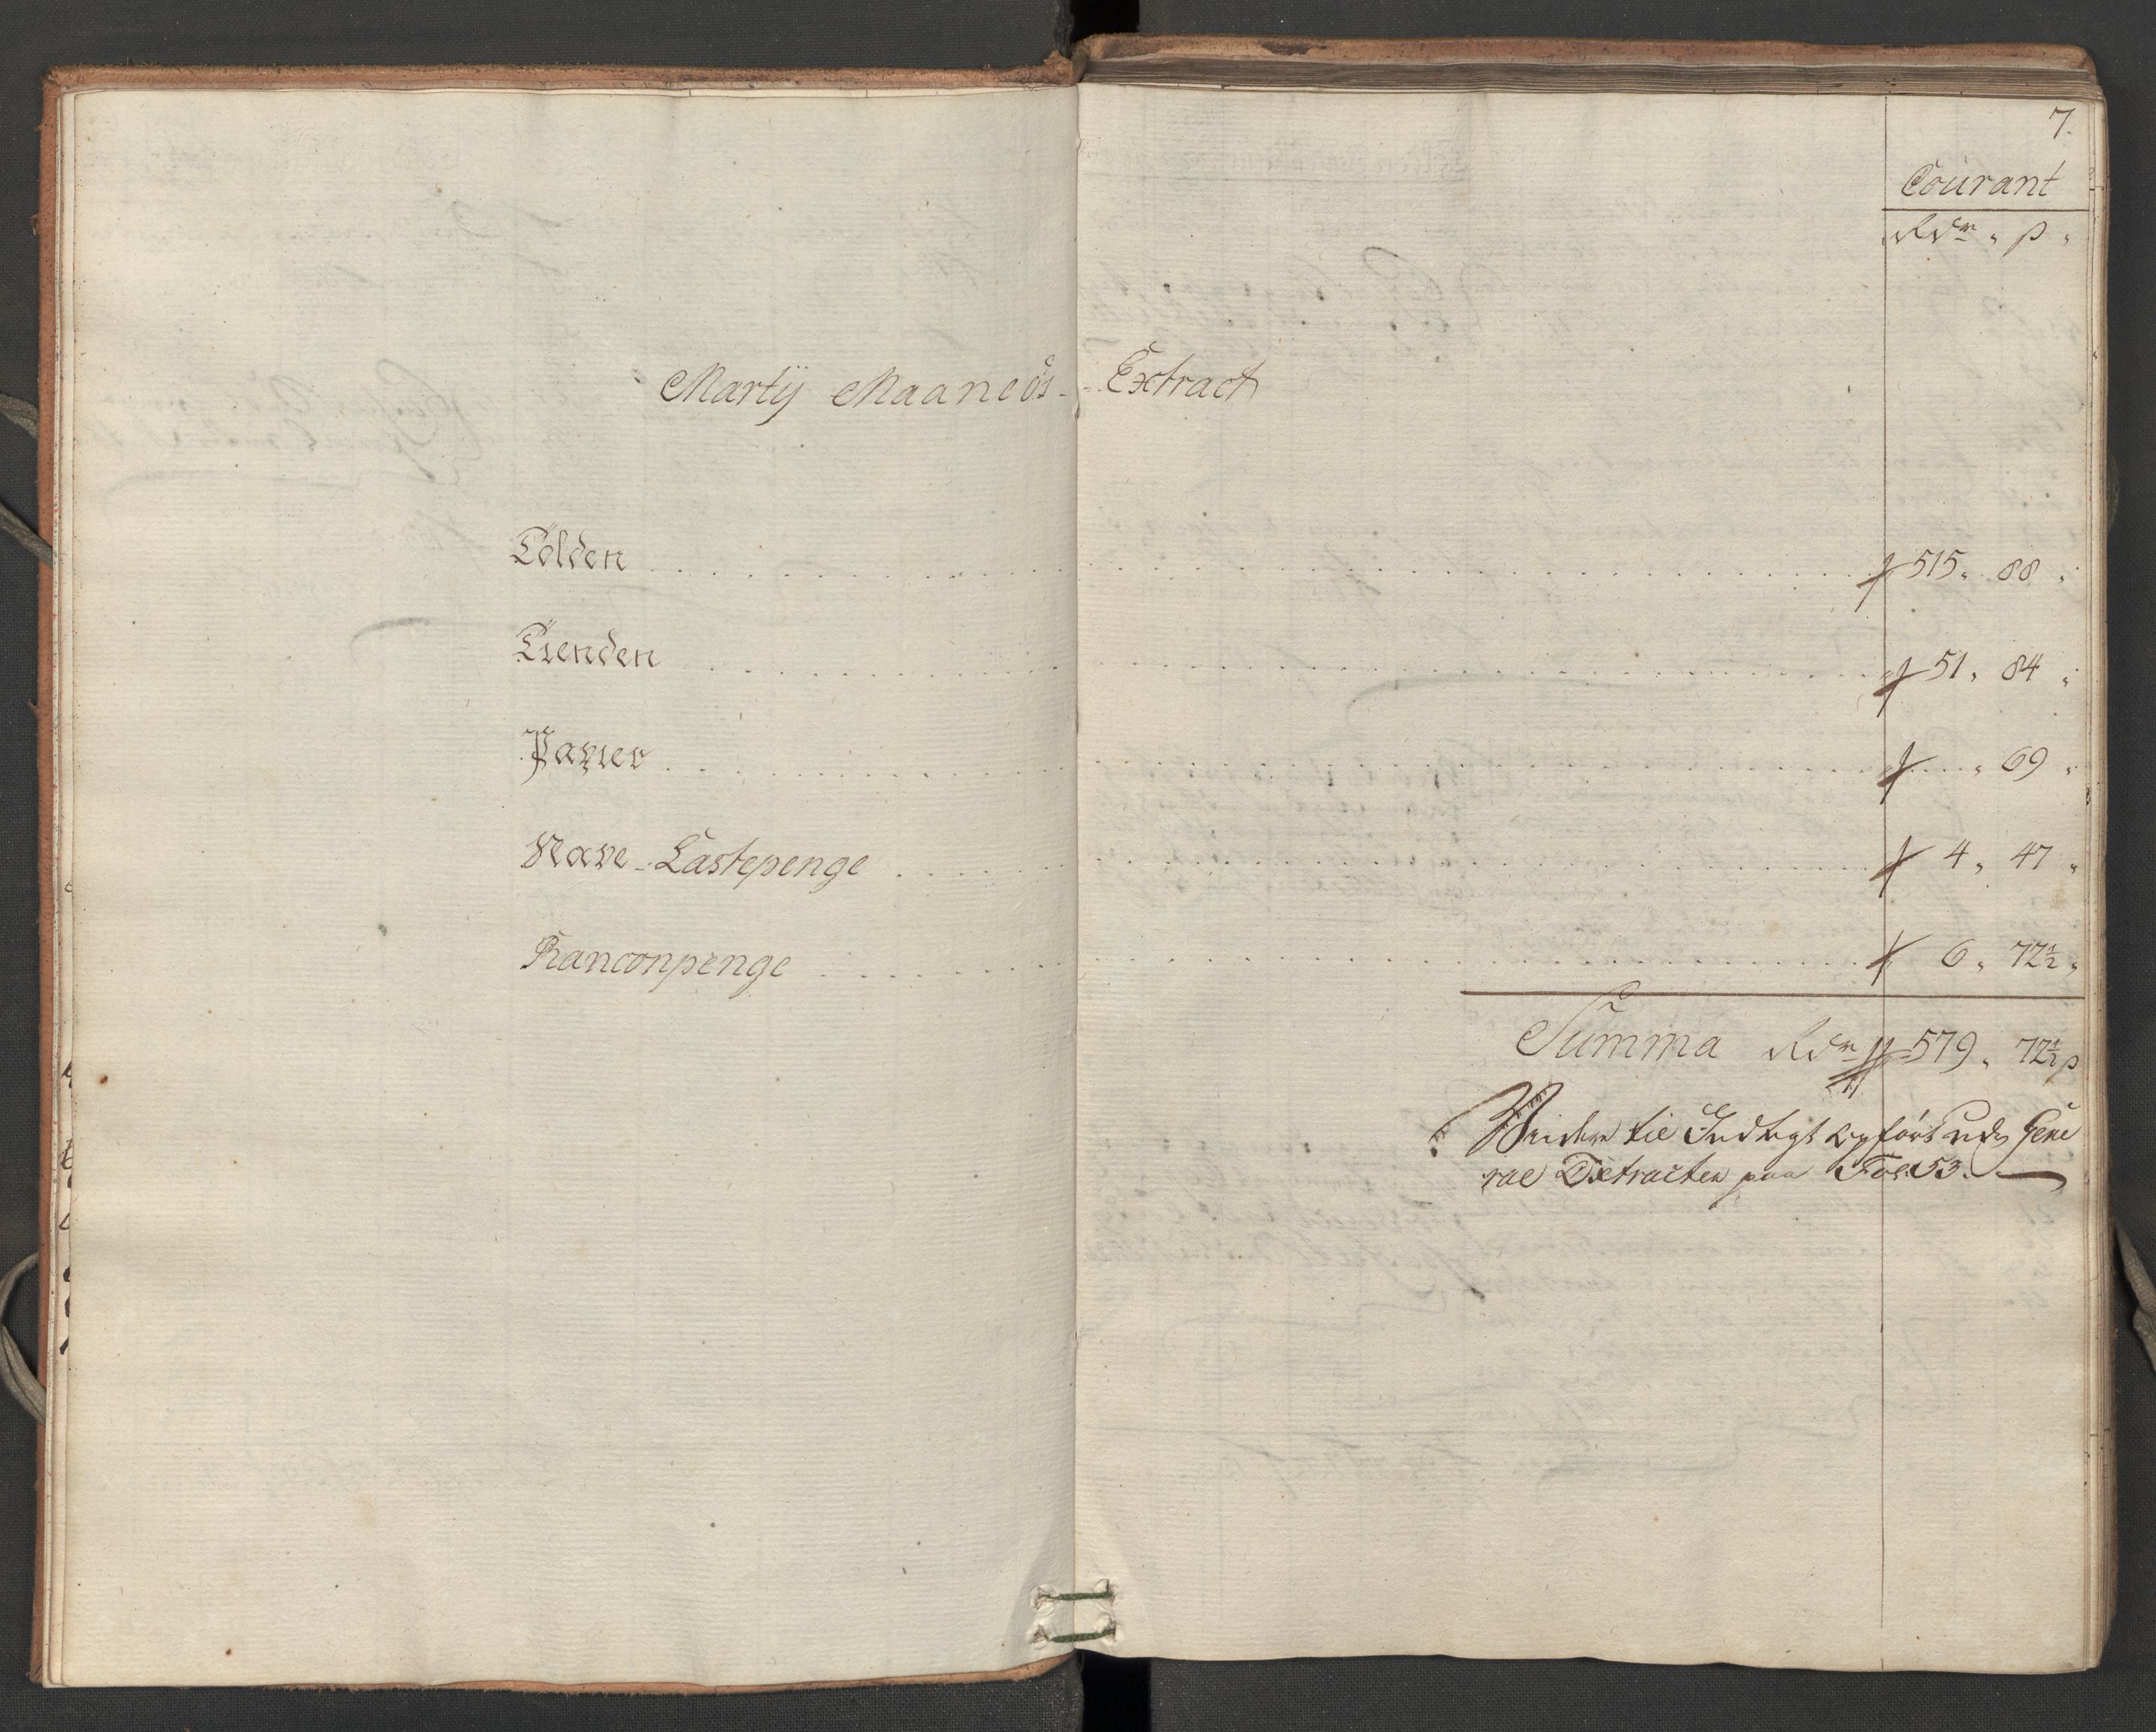 7.
Courant
Rdr „ ß „
Martij Maaneds - Extract
Tolden 515 „ 88 „
Tienden 51 „ 84 „
Papier „ 69 „
Nave-Lastepenge 4 „ 47 „
Ranconpenge 6 „ 72½ „
Summa Rdr 579 „ 72½ ß
Viidere til Indtegt opfört udj Gene
ral Extracten paa Fol: 53.